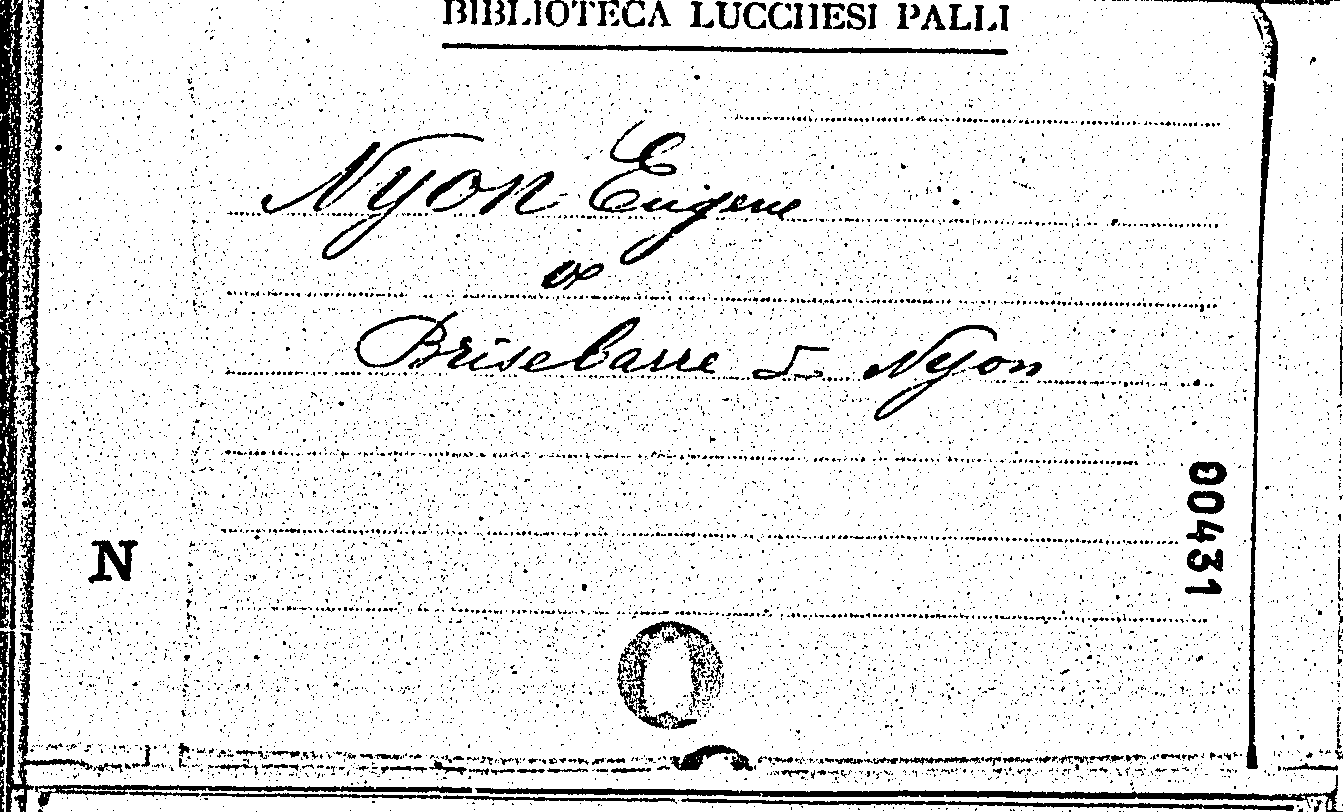 BIBLIOTECA LUCCHESI PALLI
Nyon Eugene
Brisebarre & Nyon
N
00431